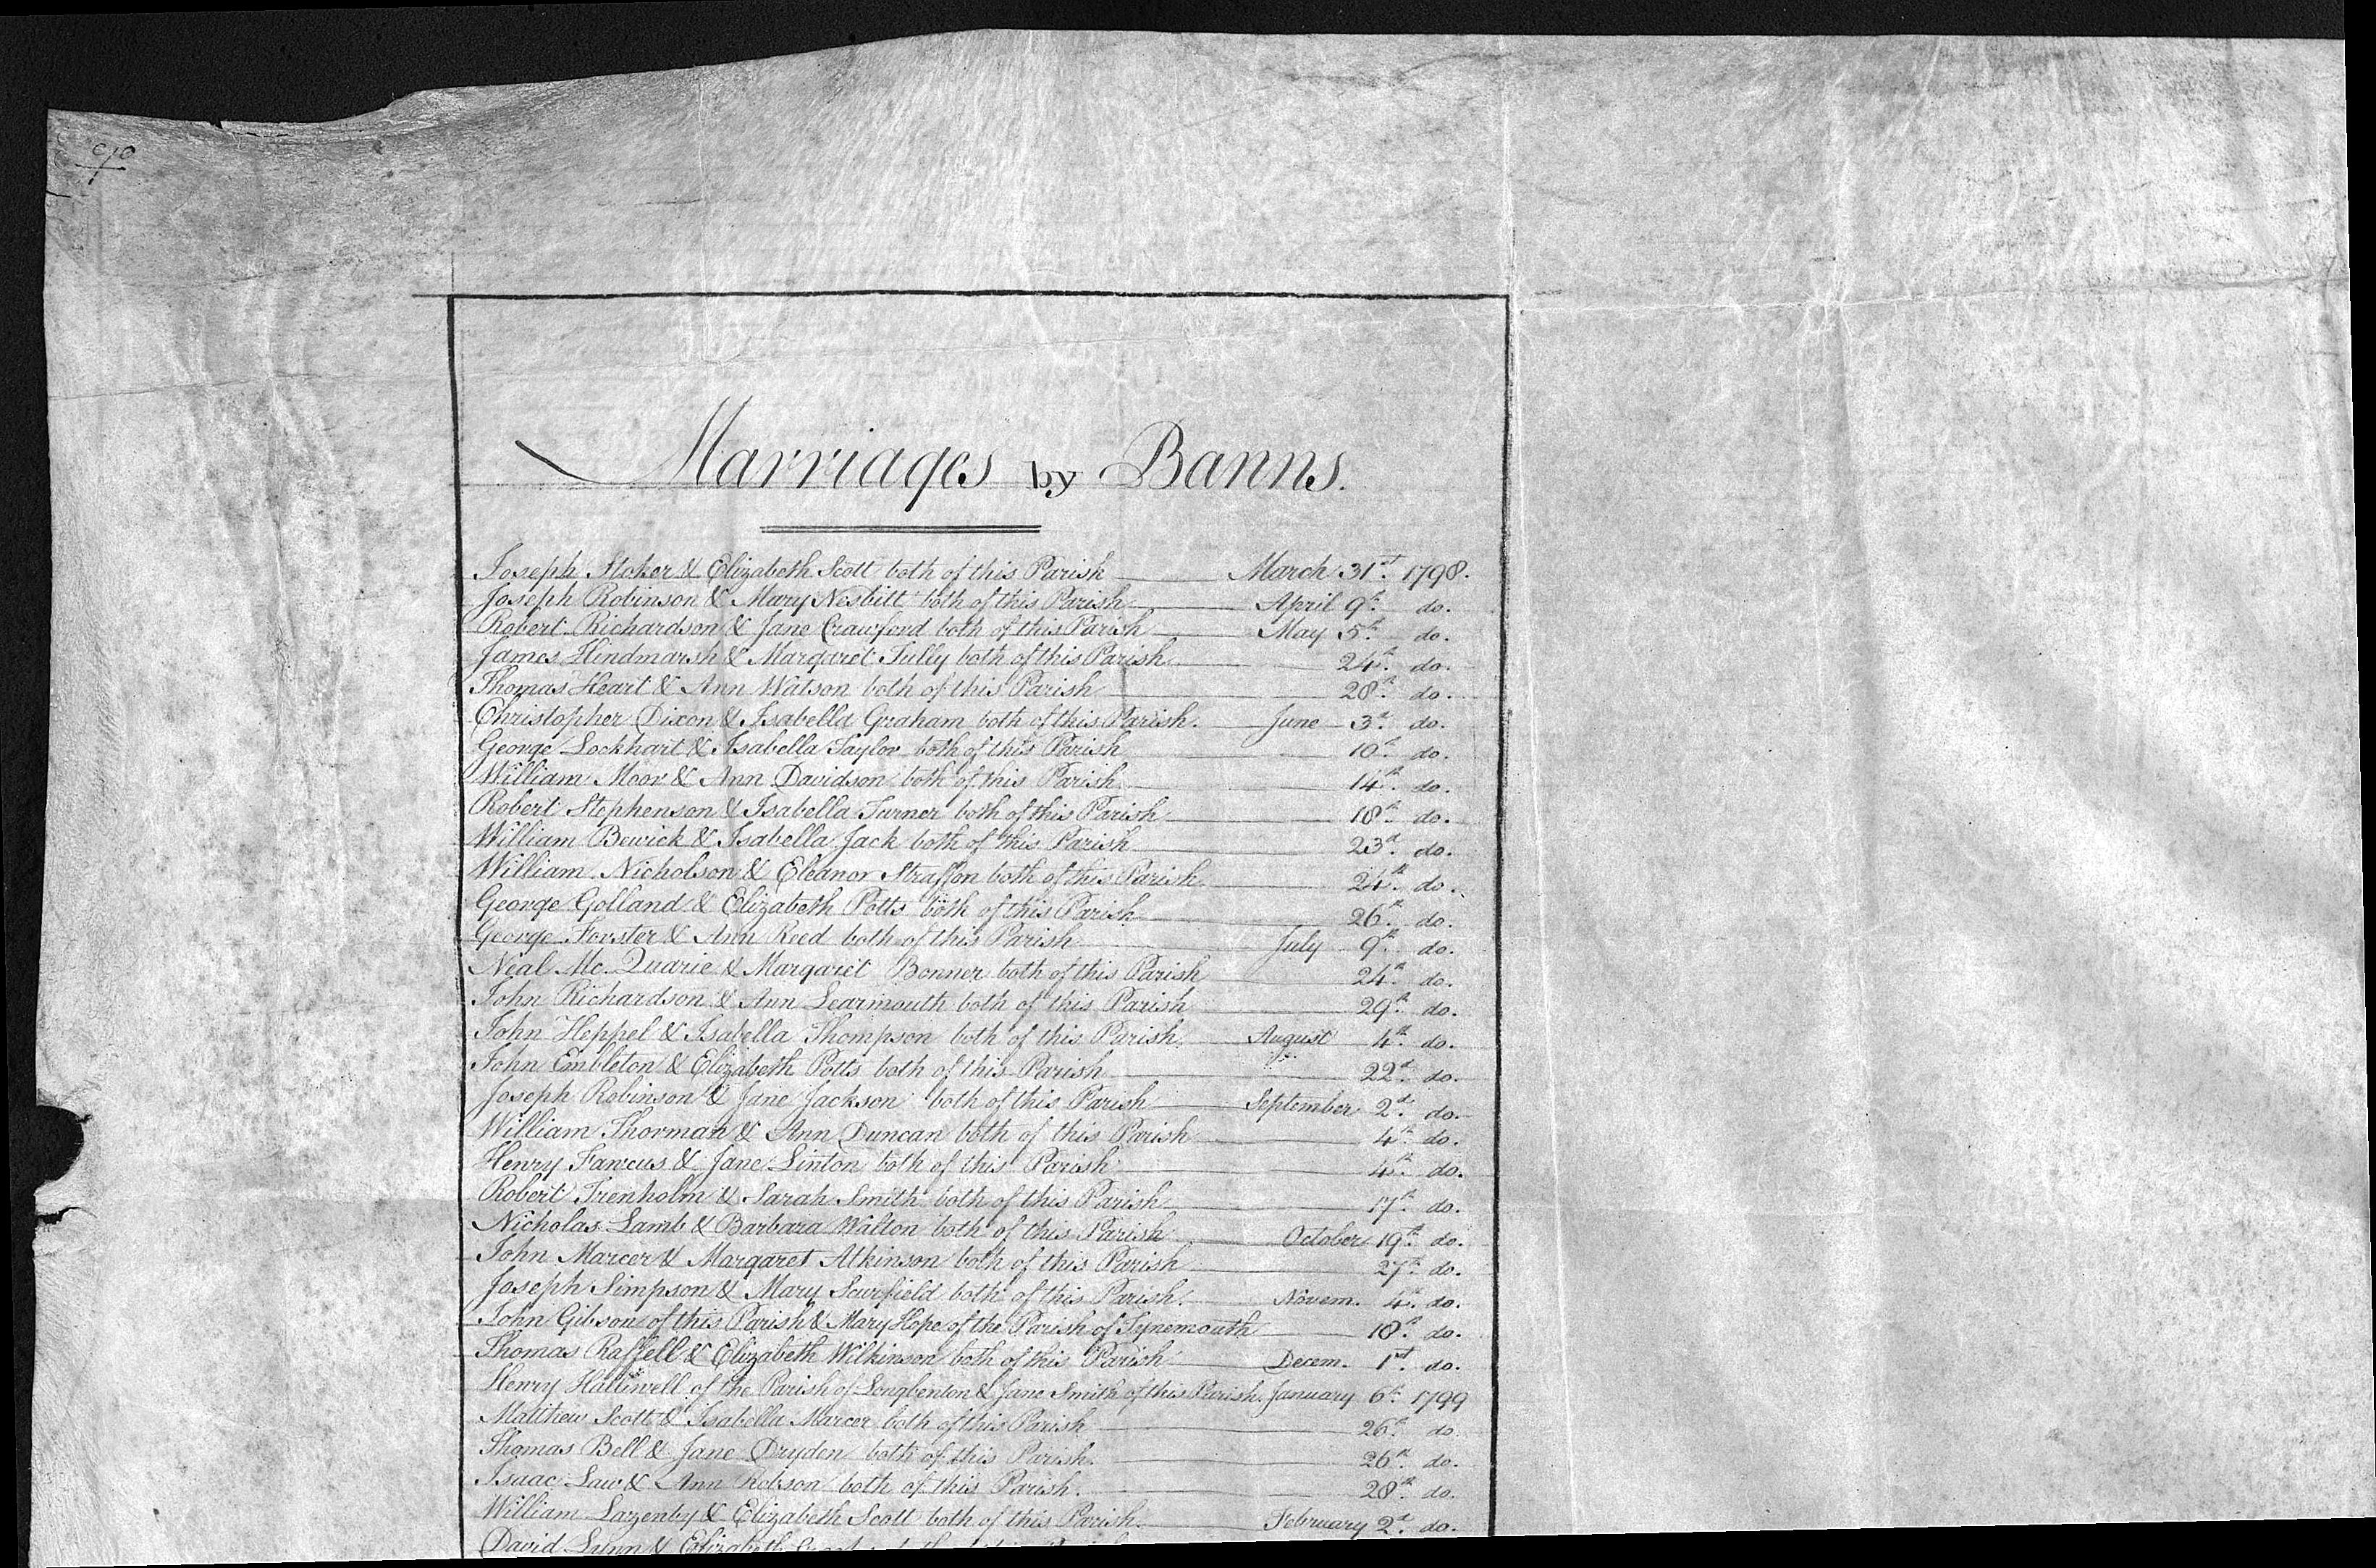 Marriages by Banns.
Joseph Stoker & Elizabeth Scott both of this Parish March 31st. 1798.
Joseph Robinson & Mary Nesbitt both of this Parish April 9th. do.
Robert Richardson & Jane Crawford both of this Parish May 5th. do.
James Hindmarsh & Margaret Tully both of this Parish 24th. do.
Thomas Heart & Ann Watson both of this Parish 28th. do.
Christopher Dixon & Isabella Graham both of this Parish. June 3d. do.
George Lockhart & Isabella Taylor both of this Parish 10th. do.
William Moor & Ann Davidson both of this Parish 14th. do.
Robert Stephenson & Isabella Turner both of this Parish 18th. do.
William Bewick & Isabella Jack both of this Parish 23d. do.
William Nicholson & Eleanor Straffon both of this Parish 24th. do.
George Golland & Elizabeth Potts both of this Parish 26th. do.
George Forster & Ann Reed both of this Parish July 9th. do.
Neal Mc. Quarie & Margaret Bonner both of this Parish 24th. do.
John Richardson & Ann Learmouth both of this Parish 29th. do.
John Heppel & Isabella Thompson both of this Parish. August 4th. do.
John Embleton & Elizabeth Potts both of this Parish 22d. do.
Joseph Robinson & Jane Jackson both of this Parish September 2d. do.
William Thorman & Ann Duncan both of this Parish 4th. do.
Henry Fawcus & Jane Linton both of this Parish 4th. do.
Robert Trenholm & Sarah Smith both of this Parish 17th. do.
Nicholas Lamb & Barbara Walton both of this Parish October 19th. do.
John Marcer & Margaret Atkinson both of this Parish 27th. do.
Joseph Simpson & Mary Scurfield both of this Parish. Novem. 4th. do.
John Gibson of this Parish & Mary Hope of the Parish of Tynemouth 18th. do.
Thomas Raffell & Elizabeth Wilkinson both of this Parish Decem. 1st. do.
Henry Halliwell of the Parish of Longbenton & Jane Smith of this Parish. January 6th. 1799
Matthew Scott & Isabella Marcer both of this Parish 26th. do.
Thomas Bell & Jane Dryden both of this Parish. 26th. do.
Isaac Law & Ann Robson both of this Parish. 28th. do.
William Lazenby & Elizabeth Scott both of this Parish. February 2d. do.
David Lunn & Elizabeth